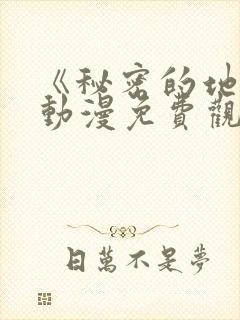 《秘密的地
動漫免費觀
日萬不是夢